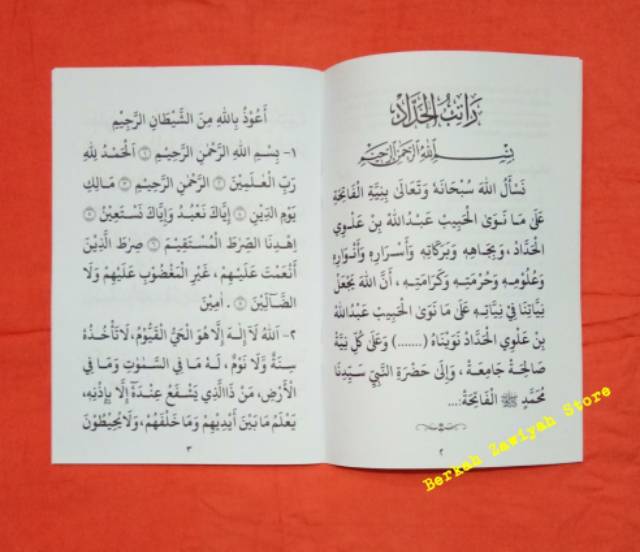 رَاتِبُ الْحَدَّادْ
بِسْمِ اللهِ الرَّحْمٰنِ الرَّحِيْمِ
نَسْأَلُ اللهَ سُبْحَانَهُ وَتَعَالَى بِنِيَّةِ الْفَاتِحَةِ
عَلَى مَا نَوَىٰ الْحَبِيبُ عَبْدُ اللهِ بِنْ عَلْوِي
الْحَدَّادْ، وَبِجَاهِهِ وَبَرَكَاتِهِ وَأَسْرَارِهِ وَأَنْوَارِهِ
وَعُلُومِهِ وَحُرْمَتِهِ وَكَرَامَتِهِ، أَنَّ اللهَ يَجْعَلُ
نِيَّاتِنَا فِيْ نِيَّاتِهِ عَلَى مَا نَوَىٰ الْحَبِيبُ عَبْدُ اللهِ
بِنْ عَلْوِي الْحَدَّادْ نَوَيْنَاهُ (.......) وَعَلَى كُلِّ نِيَّةٍ
صَالِحَةٍ جَامِعَةٍ، وَإِلَىٰ حَضْرَةِ النَّبِيِّ سَيِّدِنَا
مُحَمَّدٍ ﷺ الْفَاتِحَةْ:...
٢
أَعُوْذُ بِاللهِ مِنَ الشَّيْطَانِ الرَّجِيْمِ
١- بِسْمِ اللهِ الرَّحْمٰنِ الرَّحِيْمِ ١ اَلْحَمْدُ لِلّٰهِ
رَبِّ الْعٰلَمِيْنَ ٢ الرَّحْمٰنِ الرَّحِيْمِ ٣ مَالِكِ
يَوْمِ الدِّيْنِ ٤ إِيَّاكَ نَعْبُدُ وَإِيَّاكَ نَسْتَعِيْنُ ٥
اِهْدِنَا الصِّرٰطَ الْمُسْتَقِيْمَ ٦ صِرٰطَ الَّذِيْنَ
أَنْعَمْتَ عَلَيْهِمْ، غَيْرِ الْمَغْضُوْبِ عَلَيْهِمْ وَلَا
الضَّآلِّيْنَ ٧. اٰمِيْنَ
٢- اَللهُ لَآ إِلٰهَ إِلَّا هُوَ الْحَيُّ الْقَيُّوْمُ، لَا تَأْخُذُهُ
سِنَةٌ وَّلَا نَوْمٌ، لَهُ مَا فِي السَّمٰوٰتِ وَمَا فِي
الْأَرْضِ، مَنْ ذَاالَّذِي يَشْفَعُ عِنْدَهُ إِلَّا بِإِذْنِهِ،
يَعْلَمُ مَا بَيْنَ أَيْدِيْهِمْ وَمَا خَلْفَهُمْ، وَلَا يُحِيْطُوْنَ
٣
Berkah Zawiyah Store